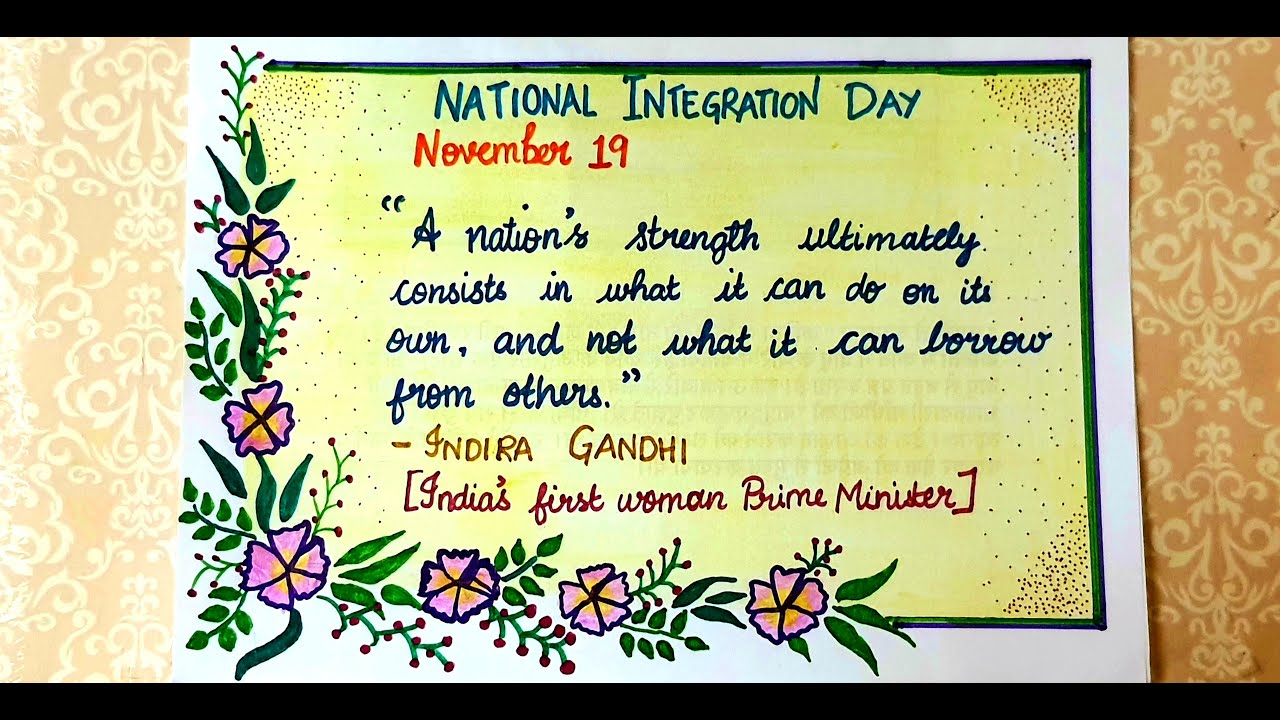 NATIONAL INTEGRATION DAY
November 19
“A nation's strength ultimately
consists in what it can do on its
own, and not what it can borrow
from others.”
- INDIRA GANDHI
[India's first woman Prime Minister]